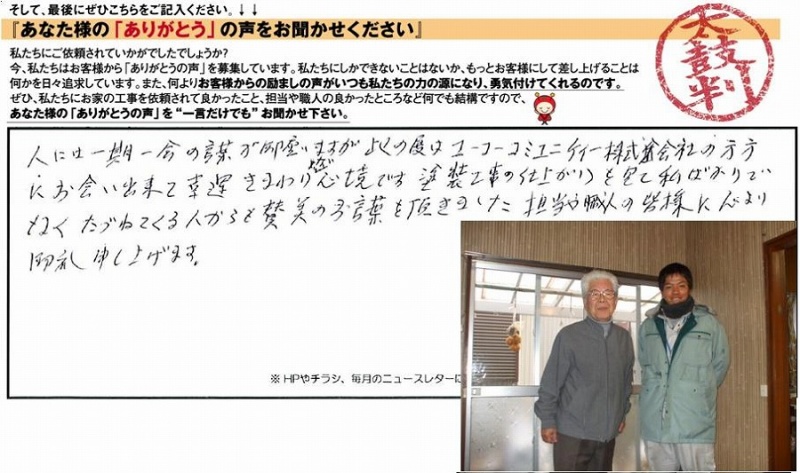 そして、最後にぜひこちらをご記入ください。↓↓
『あなた様の「ありがとう」の声をお聞かせください』
私たちにご依頼されていかがでしたでしょうか?
今、私たちはお客様から「ありがとうの声」を募集しています。私たちにしかできないことはないか、もっとお客様にして差し上げることは
何かを日々追求しています。また、何よりお客様からの励ましの声がいつも私たちの力の源になり、勇気付けてくれるのです。
ぜひ、私たちにお家の工事を依頼されて良かったこと、担当や職人の良かったところなど何でも結構ですので、
あなた様の「ありがとうの声」を“一言だけでも”お聞かせ下さい。
太鼓判
人には一期一会の言葉が御座いますが この度は ユーコーコミュニティー株式会社の方方
にお会い出来て幸運きまわり 心境です 塗装工事の仕上がりを見て私ばかりで
なく たづねてくる人からも賛美のお言葉を頂きました 担当や職人の皆様に心より
御礼申し上げます。
※HPやチラシ、毎月のニュースレターに